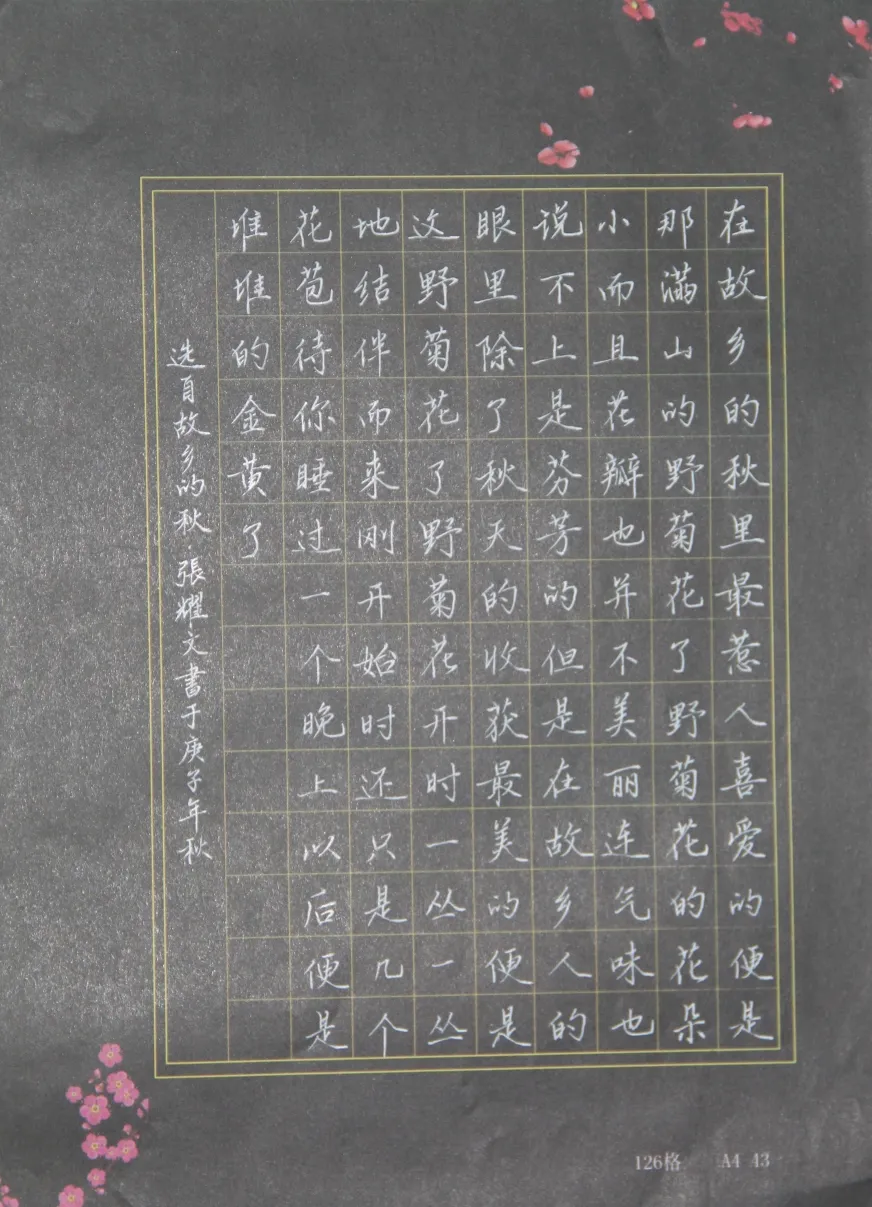 在故乡的秋里最惹人喜爱的便是
那满山的野菊花了野菊花的花朵
小而且花瓣也并不美丽连气味也
说不上是芬芳的但是在故乡人的
眼里除了秋天的收获最美的便是
这野菊花了野菊花开时一丛一丛
地结伴而来刚开始时还只是几个
花苞待你睡过一个晚上以后便是
堆堆的金黄了
选自故乡的秋·張耀文書于庚子年秋
126格 A4 43